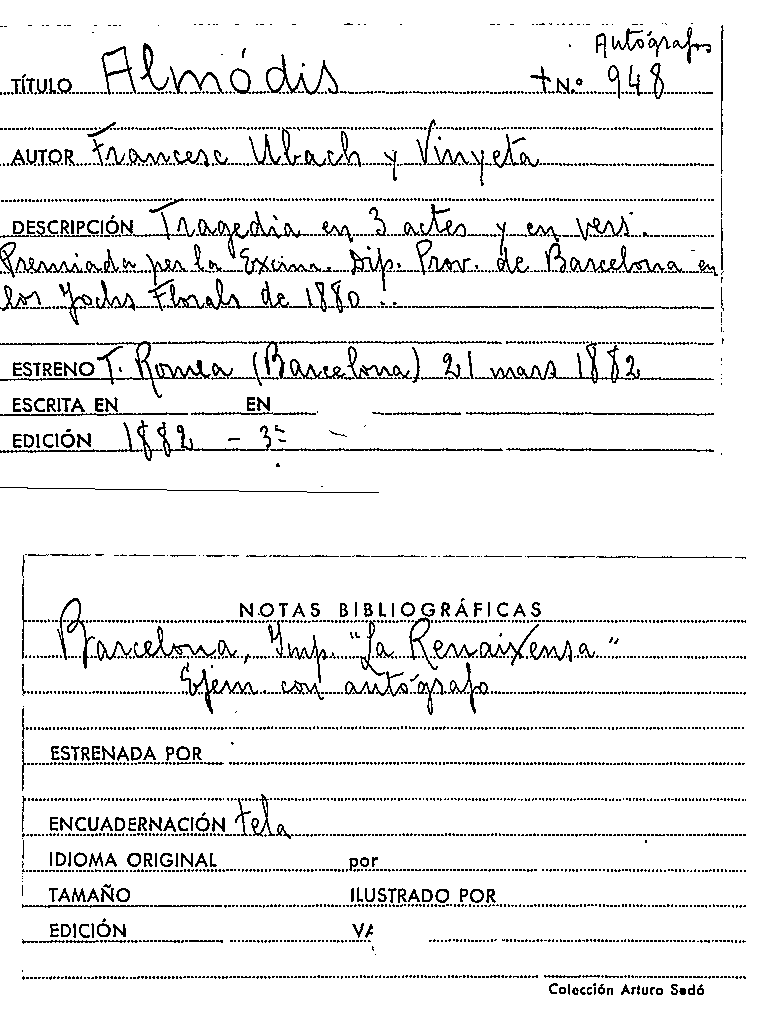 Autógrafos
TÍTULO Almódis + N.º 948
AUTOR Francesc Ubach y Vinyeta
DESCRIPCIÓN Tragedia en 3 actes y en vers.
Premiada per la Excma. Dip. Prov. de Barcelona en
los Jochs Florals de 1880..
ESTRENO T. Romea (Barcelona) 21 mars 1882
ESCRITA EN EN
EDICIÓN 1882 - 3ª
NOTAS BIBLIOGRÁFICAS
Barcelona, Imp. "La Renaixensa"
Ejem. con autógrafo
ESTRENADA POR
ENCUADERNACIÓN tela
IDIOMA ORIGINAL por
TAMAÑO ILUSTRADO POR
EDICIÓN
Colección Arturo Sedó